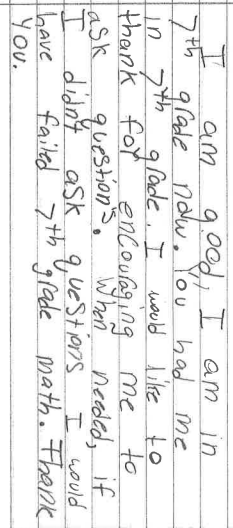 I am good, I am in
7th grade now. You had me
in 7th grade. I would like to
thank for encouraging me to
ask question's. When needed, if
I didn't ask questions I would
have failed 7th grade math. Thank
you.